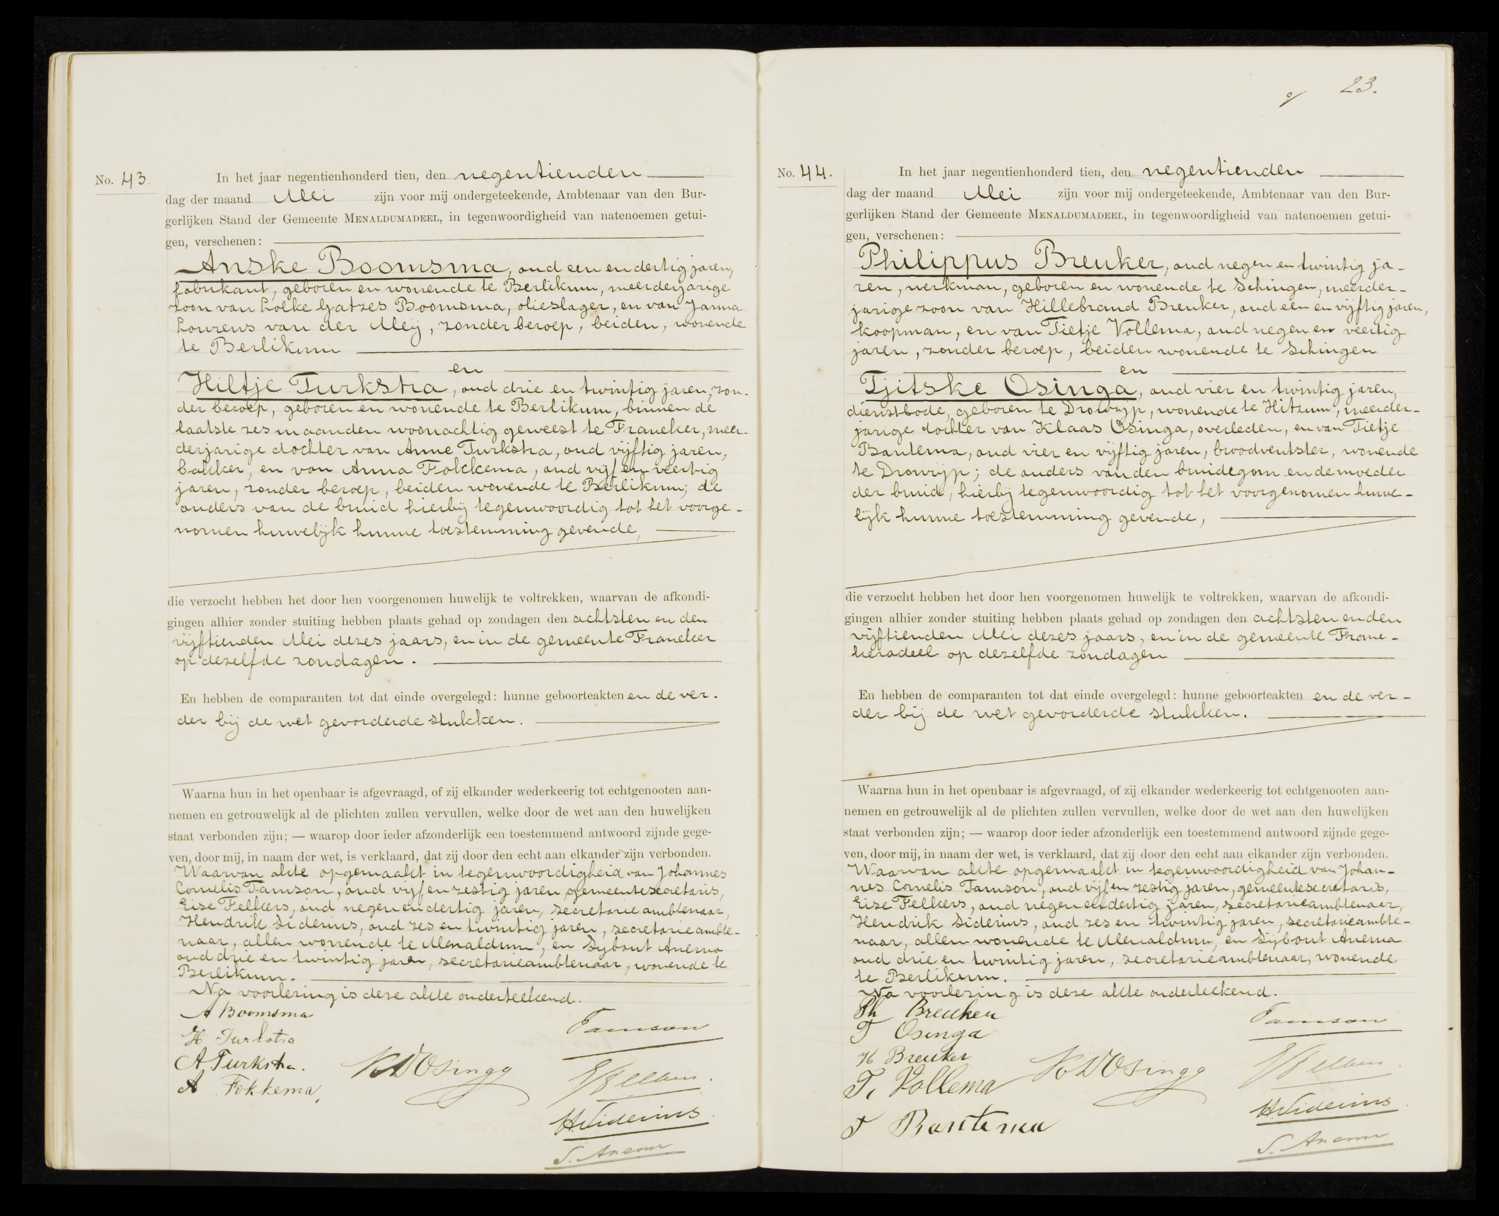 No. 43.
In het jaar negentienhonderd tien, den negentienden
dag der maand Mei zijn voor mij ondergeteekende, Ambtenaar van den Bur-
gerlijken Stand der Gemeente MENALDUMADEEL, in tegenwoordigheid van natenoemen getui-
gen, verschenen:
Anske Boomsma, oud een en dertig jaren,
fabrikant, geboren en wonende te Berlikum, meerderjarige
zoon van Folke Gatzes Boomsma, olieslager, en van Janna
Lourens van der Meij, zonder beroep, beiden, wonende
te Berlikum
en
Hiltje Turkstra, oud drie en twintig jaren, zon-
der beroep, geboren en wonende te Berlikum, binnen de
laatste zes maanden woonachtig geweest te Franeker, meer-
derjarige dochter van Anne Turkstra, oud vijftig jaren,
bakker, en van Anna Fokkema, oud vijf en veertig
jaren, zonder beroep, beiden wonende te Berlikum; de
ouders van de bruid hierbij tegenwoordig tot het voorge-
nomen huwelijk hunne toestemming gevende,
die verzocht hebben het door hen voorgenomen huwelijk te voltrekken, waarvan de afkondi-
gingen alhier zonder stuiting hebben plaats gehad op zondagen den achtsten en den
vijftienden Mei dezes jaars, en in de gemeente Franeker
op dezelfde zondagen.
En hebben de comparanten tot dat einde overgelegd: hunne geboorteakten en de ver-
der bij de wet gevorderde stukken.
Waarna hun in het openbaar is afgevraagd, of zij elkander wederkeerig tot echtgenooten aan-
nemen en getrouwelijk al de plichten zullen vervullen, welke door de wet aan den huwelijken
staat verbonden zijn; — waarop door ieder afzonderlijk een toestemmend antwoord zijnde gege-
ven, door mij, in naam der wet, is verklaard, dat zij door den echt aan elkander zijn verbonden.
Waarvan akte opgemaakt in tegenwoordigheid van Johannes
Cornelis Tamson, oud vijf en zestig jaren, gemeentesecretaris,
Eise Felkers, oud negen en dertig jaren, secretarieambtenaar,
Hendrik Siderius, oud zes en twintig jaren, secretarieambte-
naar, allen wonende te Menaldum, en Sybout Anema
oud drie en twintig jaren, secretarieambtenaar, wonende te
Berlikum.
Na voorlezing is deze akte onderteekend.
A Boomsma
H Turkstra
A. Turkstra.
A Fokkema,
Tamson
Felkers.
H Siderius.
S. Anema
23.
No. 44.
In het jaar negentienhonderd tien, den negentienden
dag der maand Mei zijn voor mij ondergeteekende, Ambtenaar van den Bur-
gerlijken Stand der Gemeente MENALDUMADEEL, in tegenwoordigheid van natenoemen getui-
gen, verschenen:
Philippus Breuker, oud negen en twintig ja-
ren, werkman, geboren en wonende te Schingen, meerder-
jarige zoon van Hillebrand Breuker, oud een en vijftig jaren,
koopman, en van Tietje Vollema, oud negen en veertig
jaren, zonder beroep, beiden wonende te Schingen
en
Tjitske Osinga, oud vier en twintig jaren,
dienstbode, geboren te Dronrijp, wonende te Hitzum, meerder-
jarige dochter van Klaas Osinga, overleden, en van Tietje
Bantema, oud vier en vijftig jaren, broodventster, wonende
te Dronrijp; de ouders van den bruidegom en de moeder
der bruid, hierbij tegenwoordig tot het voorgenomen huwe-
lijk hunne toestemming gevende,
die verzocht hebben het door hen voorgenomen huwelijk te voltrekken, waarvan de afkondi-
gingen alhier zonder stuiting hebben plaats gehad op zondagen den achtsten en den
vijftienden Mei dezes jaars, en in de gemeente Frane-
keradeel op dezelfde zondagen
En hebben de comparanten tot dat einde overgelegd: hunne geboorteakten en de ver-
der bij de wet gevorderde stukken.
Waarna hun in het openbaar is afgevraagd, of zij elkander wederkeerig tot echtgenooten aan-
nemen en getrouwelijk al de plichten zullen vervullen, welke door de wet aan den huwelijken
staat verbonden zijn; — waarop door ieder afzonderlijk een toestemmend antwoord zijnde gege-
ven, door mij, in naam der wet, is verklaard, dat zij door den echt aan elkander zijn verbonden.
Waarvan akte opgemaakt in tegenwoordigheid van Johan-
nes Cornelis Tamson, oud vijf en zestig jaren, gemeentesecretaris,
Eise Felkers, oud negen en dertig jaren, secretarieambtenaar,
Hendrik Siderius, oud zes en twintig jaren, secretarieambte-
naar, allen wonende te Menaldum, en Sybout Anema
oud drie en twintig jaren, secretarieambtenaar, wonende
te Berlikum.
Na voorlezing is deze akte onderteekend.
Ph Breuker
T Osinga
H Breuker
T. Vollema
T Bantema
Tamson
Felkers.
H Siderius.
S. Anema